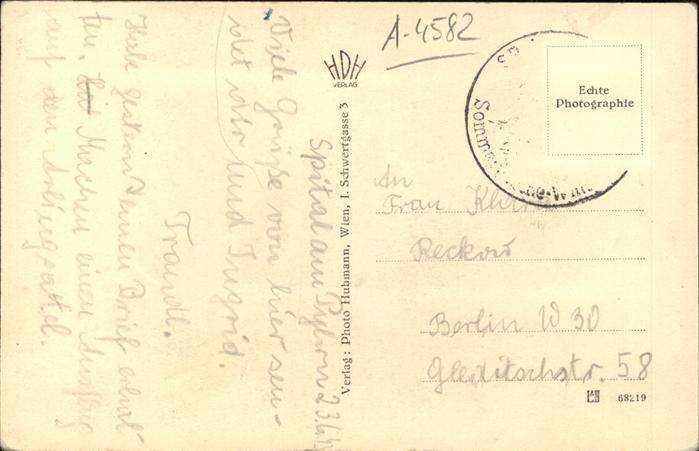 A-4582
HDH
VERLAG
Echte
Photographie
Spital am Pyhrn 23.6.
Viele Grüße von hier sen-
det dir und Ingrid.
Traudl.
Habe gestern Deinen Brief erhal-
ten. Machen einen Ausflug
auf den
Verlag: Photo Hubmann, Wien, I. Schwertgasse 3
Somme
An
Frau
Berlin W 30
Gleditschstr. 58
68219